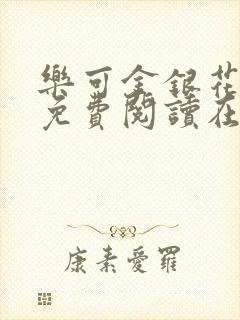 樂可金銀花
免費閱讀在
康素愛羅